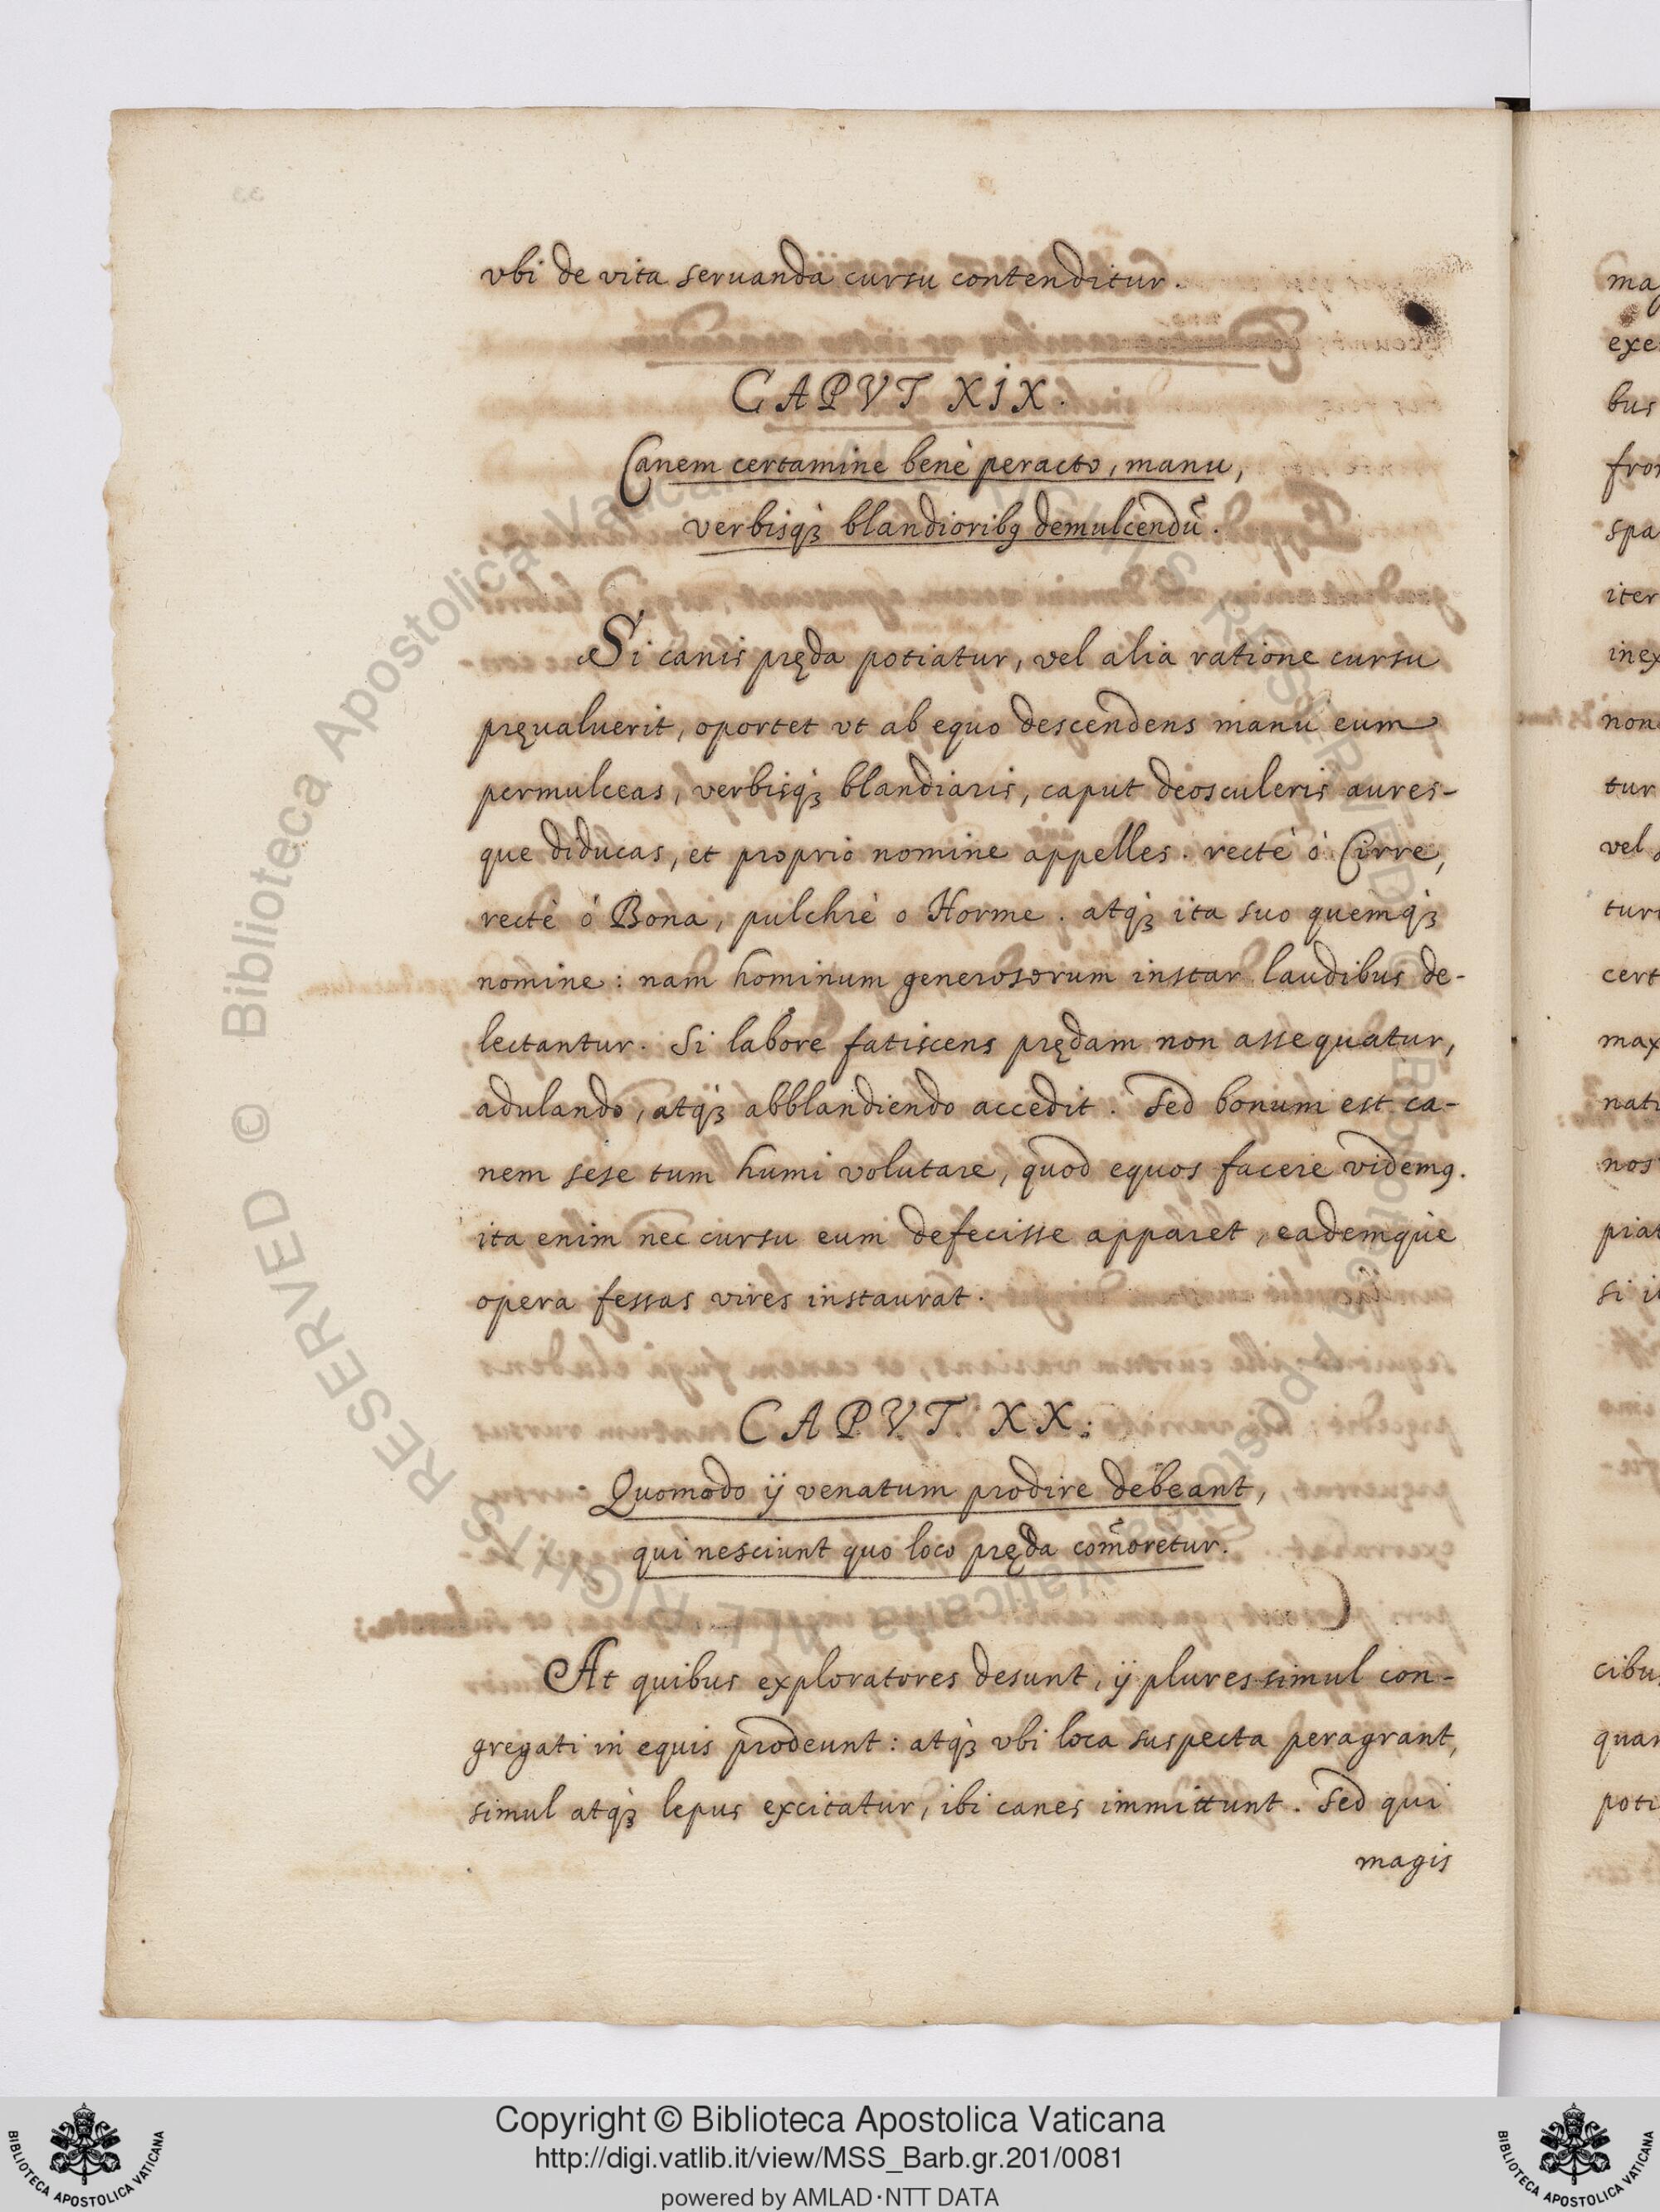 vbi de vita seruanda cursu contenditur.
CAPVT XIX.
Canem certamine benè peracto, manu,
verbisqꝫ blandioribꝯ demulcendū.
Si canis pręda potiatur, vel alia ratione cursu
pręualuerit, oportet vt ab equo descendens manu eum
permulceas, verbisqꝫ blandiaris, caput deosculeris aures-
que diducas, et proprio nomine appelles. rectè ò Cirre,
rectè ò Bona, pulchrè o Horme. atqꝫ ita suo quemqꝫ
nomine: nam hominum generosorum instar laudibus de-
lectantur. Si labore fatiscens prędam non assequatur,
adulando, atqꝫ abblandiendo accedit. Sed bonum est ca-
nem sese tum humi volutare, quod equos facere videmꝯ.
ita enim nec cursu eum defecisse apparet, eademque
opera fessas vires instaurat.
CAPVT XX.
Quomodo ij venatum prodire debeant,
qui nesciunt quo loco pręda com̄oretur.
At quibus exploratores desunt, ij plures simul con-
gregati in equis prodeunt: atqꝫ vbi loca suspecta peragrant,
simul atqꝫ lepus excitatur, ibi canes immittunt. Sed qui
magis
ma
exe
bus
fron
spa
iter
inex
non
tur
vel
turi
cert
max
nati
nos
piat
si i
cibu
quan
poti
© Biblioteca Apostolica Vaticana ALL RIGHTS RESERVED
Copyright © Biblioteca Apostolica Vaticana
http://digi.vatlib.it/view/MSS_Barb.gr.201/0081
powered by AMLAD·NTT DATA
BIBLIOTECA APOSTOLICA VATICANA
BIBLIOTECA APOSTOLICA VATICANA